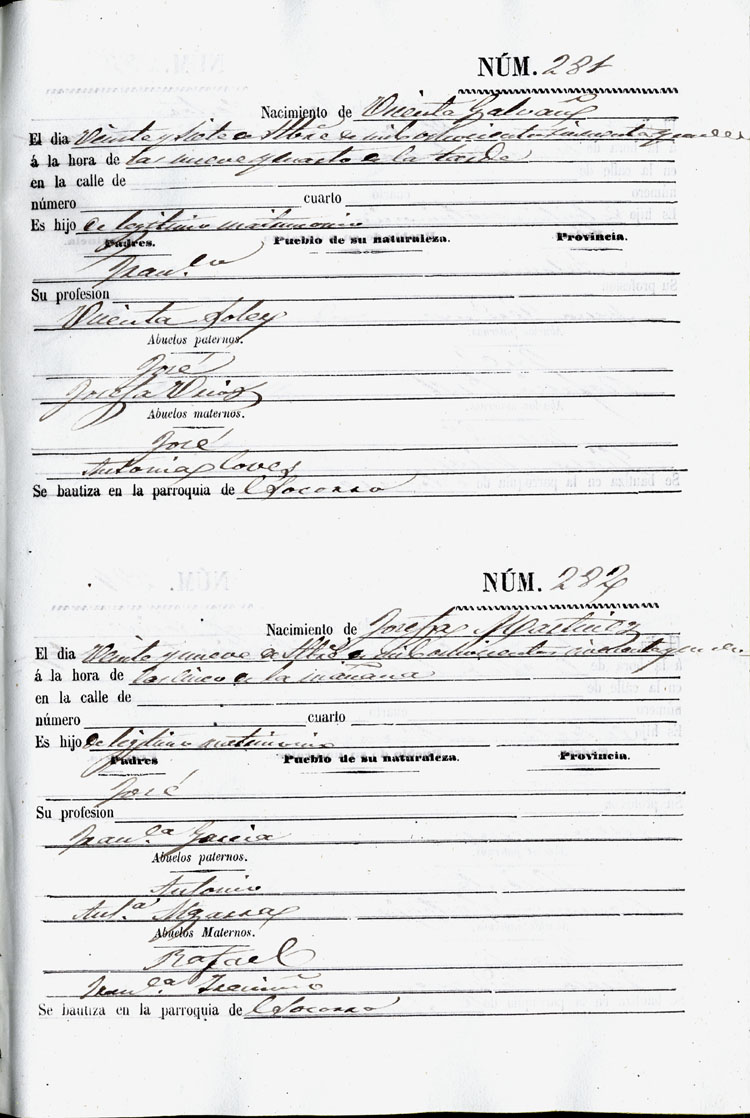 NÚM. 281
Nacimiento de Vicenta Galvañ
El dia Veinte y siete de Stbre de mil ochocientos cincuenta y
á la hora de las nueve y cuarto de la tarde
en la calle de
número cuarto
Es hijo de legitimo matrimonio
Padres. Pueblo de su naturaleza. Provincia.
Fran.co
Su profesion
Vicenta Soley
Abuelos paternos.
José
Josefa
Abuelos maternos.
José
Antonia
Se bautiza en la parroquia de Socorro
NÚM. 282
Nacimiento de Josefa Martinez
El dia Veinte y nueve de de mil ochocientos cincuenta y
á la hora de las cinco de la mañana
en la calle de
número cuarto
Es hijo de legitimo matrimonio
Padres Pueblo de su naturaleza. Provincia.
José
Su profesion
Fran.ca Garcia
Abuelos paternos.
Antonio
Ant.a
Abuelos Maternos.
Rafael
Fran.ca
Se bautiza en la parroquia de Socorro